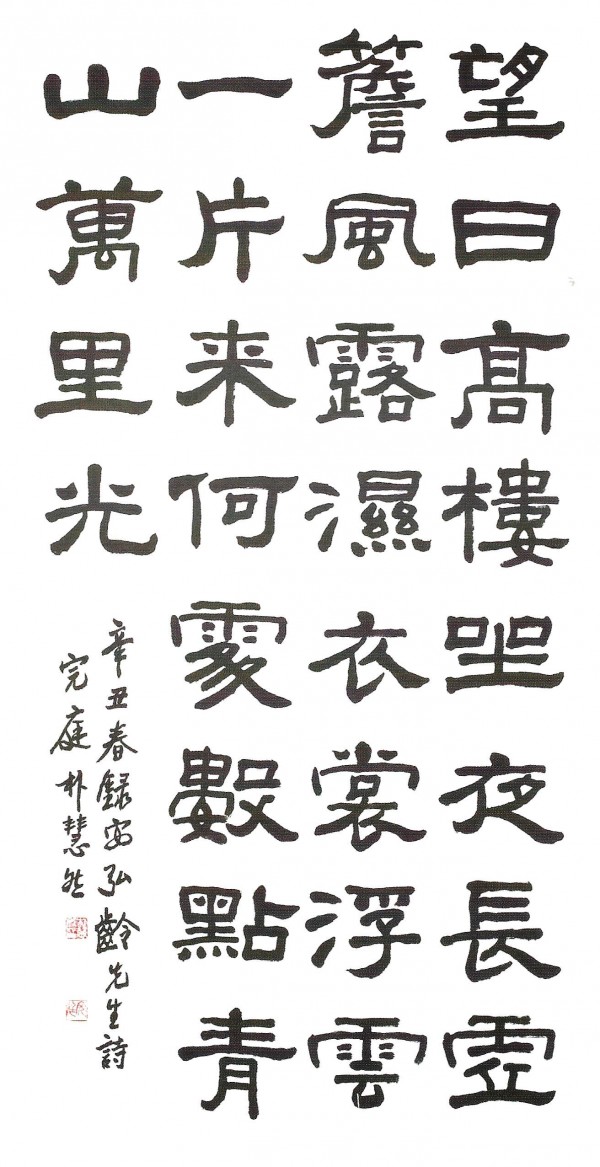 望日髙樓坐夜長虛
簷風露濕衣裳浮雲
一片来何處數點青
山萬里光
辛丑春録安弘齡先生詩
完庭朴慧然